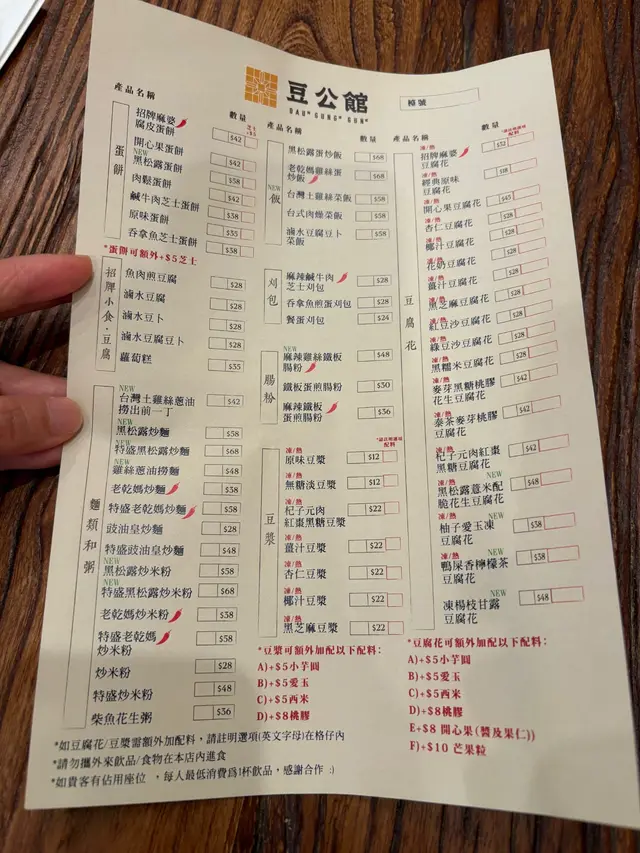 豆公館
DAU² GUNG¹ GUN²
檯號
產品名稱 數量
芝士
+$5
蛋餅
招牌麻婆
腐皮蛋餅 $42
開心果蛋餅 $42
NEW
黑松露蛋餅 $58
肉鬆蛋餅 $42
鹹牛肉芝士蛋餅 $38
原味蛋餅 $35
吞拿魚芝士蛋餅 $38
*蛋餅可額外+$5芝士
招牌小食·豆腐
魚肉煎豆腐 $28
滷水豆腐 $28
滷水豆卜 $28
滷水豆腐豆卜 $28
蘿蔔糕 $35
麵類和粥
NEW
台灣土雞絲蔥油
撈出前一丁 $42
NEW
黑松露炒麵 $58
NEW
特盛黑松露炒麵 $68
NEW
雞絲蔥油撈麵 $48
老乾媽炒麵 $38
特盛老乾媽炒麵 $58
豉油皇炒麵 $28
特盛豉油皇炒麵 $48
NEW
黑松露炒米粉 $58
NEW
特盛黑松露炒米粉 $68
老乾媽炒米粉 $38
特盛老乾媽
炒米粉 $58
炒米粉 $28
特盛炒米粉 $48
柴魚花生粥 $36
產品名稱 數量
NEW
飯
黑松露蛋炒飯 $68
老乾媽雞絲蛋
炒飯 $68
台灣土雞絲菜飯 $58
台式肉燥菜飯 $58
滷水豆腐豆卜
菜飯 $58
刈包
麻辣鹹牛肉
芝士刈包 $28
吞拿魚蛋煎刈包 $28
餐蛋刈包 $24
腸粉
NEW
麻辣雞絲鐵板
腸粉 $48
鐵板蛋煎腸粉 $30
麻辣鐵板
蛋煎腸粉 $36
豆漿
*請註明選項
配料
凍/熱
原味豆漿 $12
凍/熱
無糖淡豆漿 $12
凍/熱
杞子元肉
紅棗黑糖豆漿 $22
凍/熱
薑汁豆漿 $22
凍/熱
杏仁豆漿 $22
凍/熱
椰汁豆漿 $22
凍/熱
黑芝麻豆漿 $22
*豆漿可額外加配以下配料:
A)+$5小芋圓
B)+$5愛玉
C)+$5西米
D)+$8桃膠
產品名稱 數量
*請註明選項
配料
豆腐花
凍/熱
招牌麻婆
豆腐花 $32
凍/熱
經典原味
豆腐花 $18
凍/熱
開心果豆腐花 $45
凍/熱
杏仁豆腐花 $28
凍/熱
椰汁豆腐花 $28
凍/熱
花奶豆腐花 $28
凍/熱
薑汁豆腐花 $28
凍/熱
黑芝麻豆腐花 $28
凍/熱
紅豆沙豆腐花 $28
凍/熱
綠豆沙豆腐花 $28
凍/熱
黑糯米豆腐花 $28
凍/熱
麥芽黑糖桃膠
花生豆腐花 $42
凍/熱
泰茶麥芽桃膠
豆腐花 $42
凍/熱
杞子元肉紅棗
黑糖豆腐花 $42
凍/熱 NEW
黑松露薏米配
脆花生豆腐花 $48
凍/熱 NEW
柚子愛玉凍
豆腐花 $38
凍/熱 NEW
鴨屎香檸檬茶
豆腐花 $38
NEW
凍楊枝甘露
豆腐花 $48
*豆腐花可額外加配以下配料:
A)+$5小芋圓
B)+$5愛玉
C)+$5西米
D)+$8桃膠
E+$8 開心果(醬及果仁))
F)+$10 芒果粒
*如豆腐花/豆漿需額外加配料，請註明選項(英文字母)在格仔內
*請勿攜外來飲品/食物在本店內進食
*如貴客有佔用座位 ，每人最低消費爲1杯飲品，感謝合作 :)